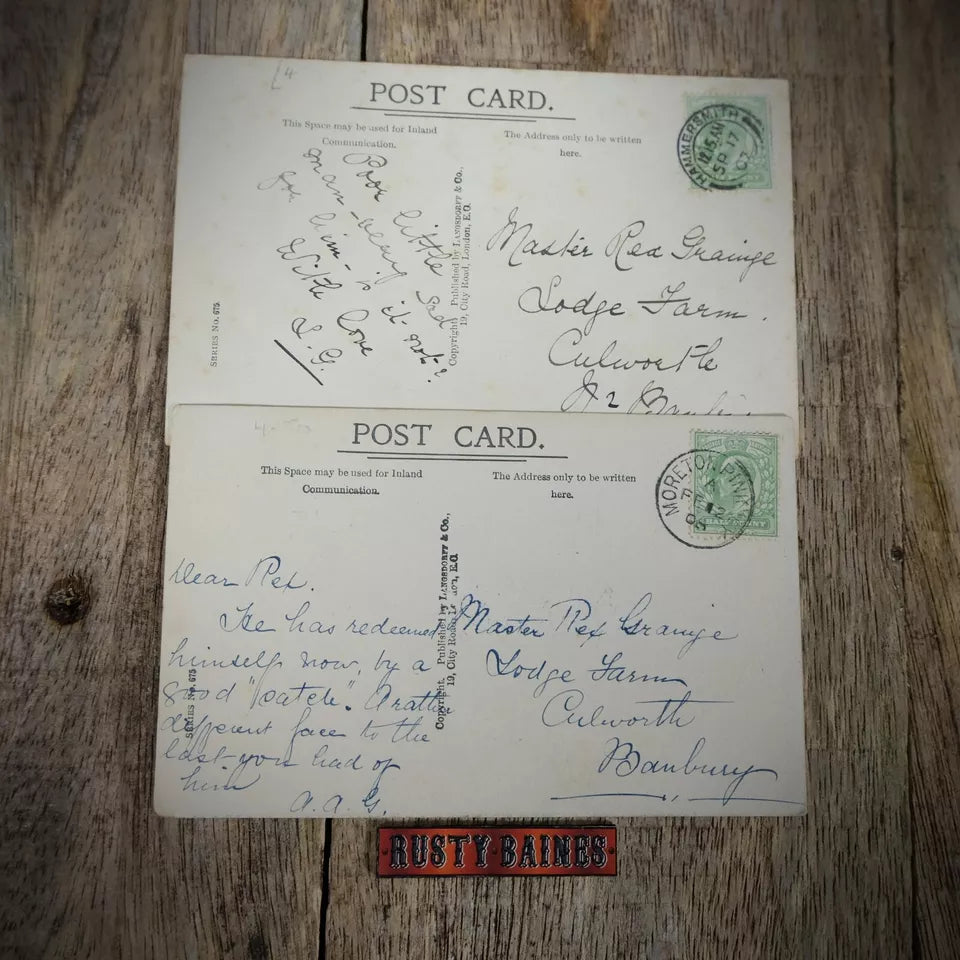 POST CARD.
This Space may be used for Inland
Communication.
The Address only to be written
here.
HAMMERSMITH
12.15 AM
SP 17
07
Poor little sad
man - very is it not?
for him -
With love
L.G.
SERIES No. 675
Copyright. Published by LANGSDORFF & Co.,
19, City Road, London, E.C.
Master Rex Grainge
Lodge Farm.
Culworth
Nr
POST CARD.
This Space may be used for Inland
Communication.
The Address only to be written
here.
MORETON PINK
A
HALF PENNY
Dear Rex.
He has redeemed
himself now, by a
good "catch". A rather
different face to the
last you had of
him
A.A.G.
SERIES No. 675
Copyright. Published by LANGSDORFF & Co.,
19, City Road, London, E.C.
Master Rex Grainge
Lodge Farm
Culworth
Banbury
RUSTY·BAINES